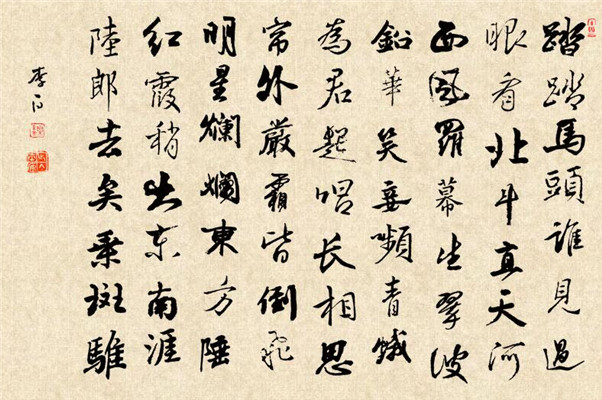 踏踏馬頭誰見過
眼看北斗直天河
西風羅幕生翠波
鉛華笑妾嚬青蛾
為君起唱長相思
帘外嚴霜皆倒飛
明星爛爛東方陲
紅霞稍出東南涯
陸郎去矣乘斑騅
李